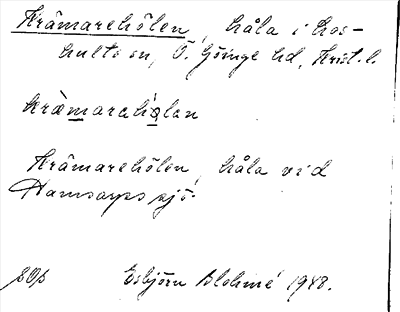 Krämarehölen, håla i Los-
hults sn, Ö. Göinge hd, Krist. l.
kræmarehølan
Krämarehölen, håla vid
Hamsarps sjö.
Esbjörn Blohmé 1948.